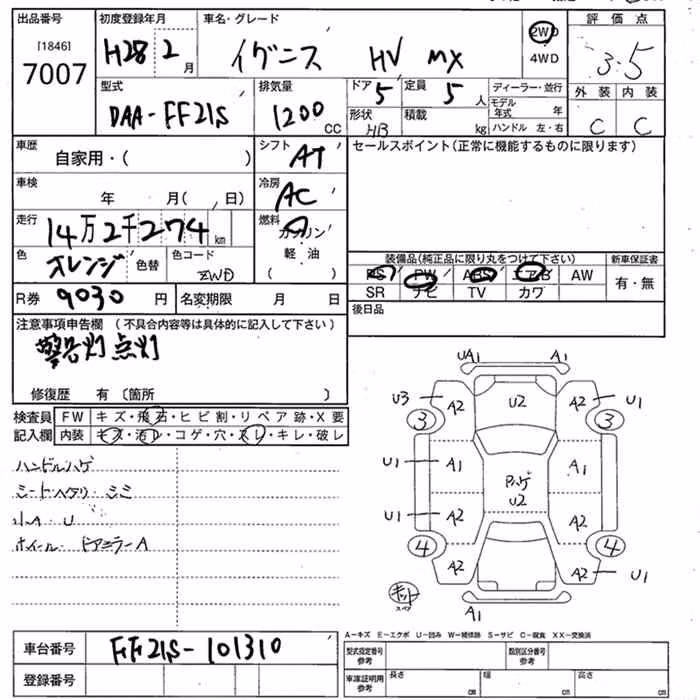 出品番号 初度登録年月 車名・グレード 2WD 評価点
[1846] 7007 H28 2月 イグニス HV MX 4WD 3.5
型式 排気量 ドア 定員 ディーラー・並行 外装 内装
DAA-FF21S 1200CC 5 5人 モデル年式 年 C C
形状 HB 積載 kg ハンドル 左・右
車歴 自家用・( ) シフト AT セールスポイント(正常に機能するものに限ります)
車検 年 月( 日) 冷房 AC
走行 14万2千274km 燃料 ガソリン
色 オレンジ 色替 色コード ZWD 軽油 ( )
装備品(純正品に限り丸をつけて下さい) 新車保証書
PS PW ABS エアB AW 有・無
SR ナビ TV カワ
R券 9030円 名変期限 月 日
後日品
注意事項申告欄 (不具合内容等は具体的に記入して下さい)
警告灯点灯
修復歴 有〔箇所 〕
検査員 FW キズ・飛石・ヒビ割・リペア跡・X要
記入欄 内装 キズ・汚レ・コゲ・穴・スレ・キレ・破レ
ハンドルハゲ
シートヘタリ・シミ
小A U
ホイール・ドアミラーA
UA1 A1
U3 A2 U2 A2 U1
3 3
U1 A1 Pハゲ A1
U2
U1 A2 A2
4 4
A2 A2 U1
キット
スペア
A1
A-キズ E-エクボ U-凹み W-補修跡 S-サビ C-腐食 XX-交換済
車台番号 FF21S-101310 型式指定番号 参考 類別区分番号 参考
登録番号 車庫証明用 参考 長さ cm 幅 cm 高さ cm